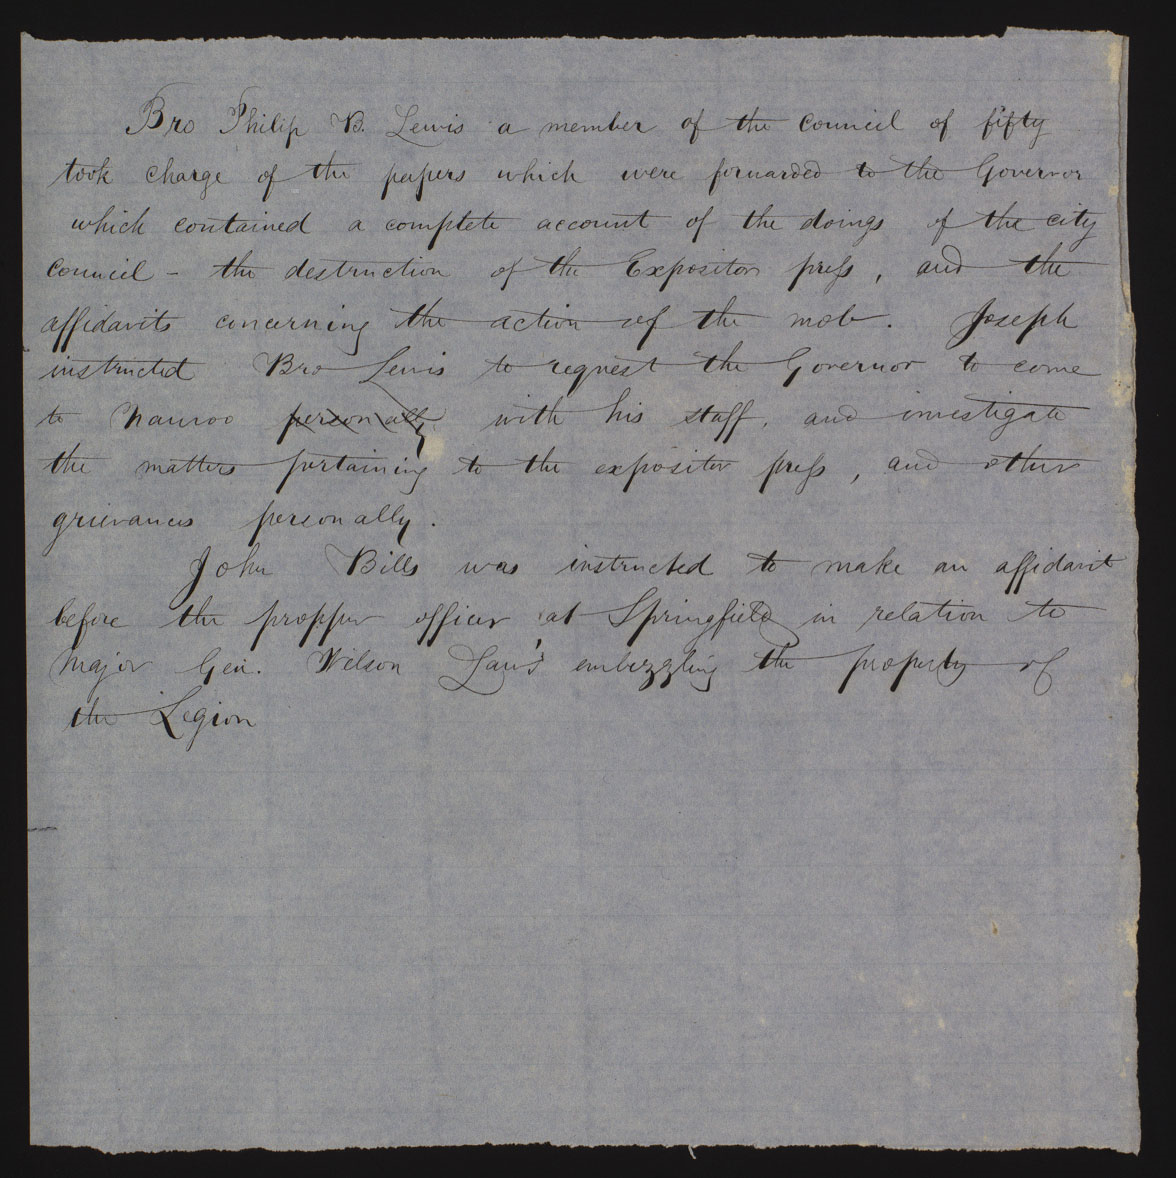 Bro Philip B. Lewis a member of the council of fifty
took charge of the papers which were forwarded to the Governor
which contained a complete account of the doings of the city
council - the destruction of the Expositor press, and the
affidavits concerning the action of the mob. Joseph
instructed Bro Lewis to request the Governor to come
to Nauvoo personally with his staff, and investigate
the matters pertaining to the expositor press, and other
grievances personally.
John Bills was instructed to make an affidavit
before the propper officer, at Springfield in relation to
Major Gen. Wilson Law's embezzling the property of
the Legion